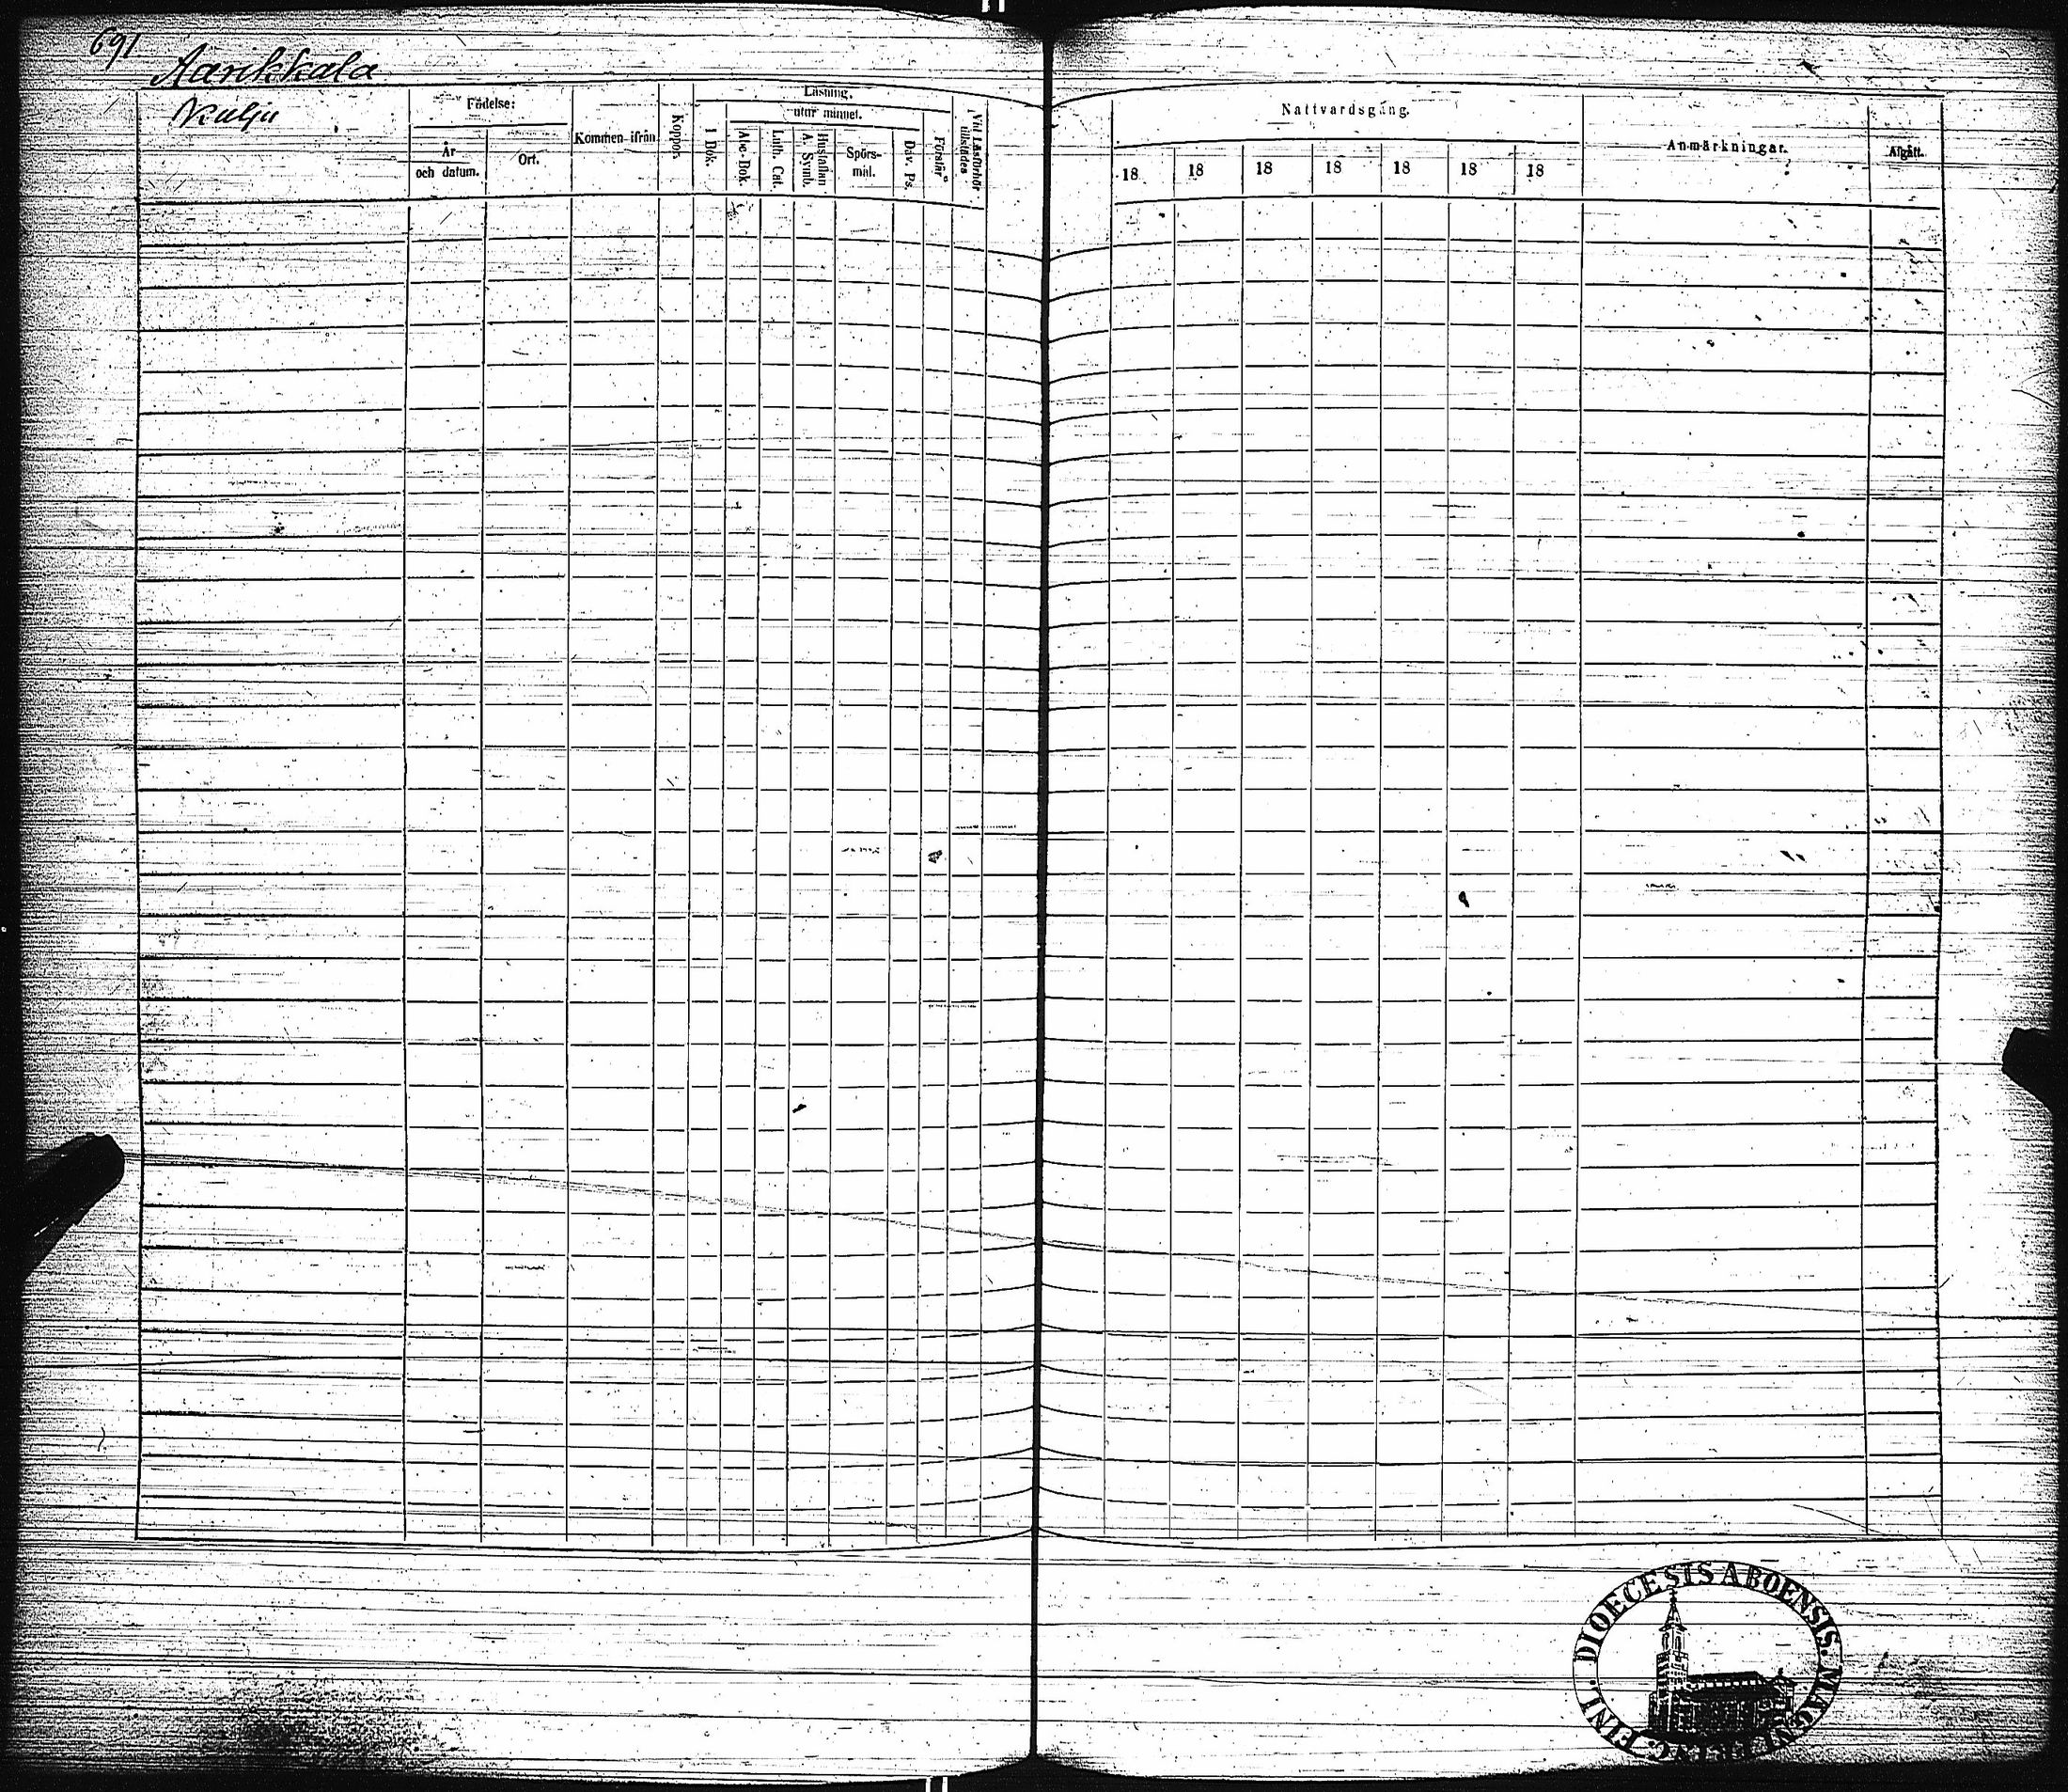 691
Aarikkala
Kulju
Födelse:
År
och datum.
Ort.
Kommen ifrån
Koppor.
Läsning.
I Bok.
utur minnet.
Abc-Bok.
Luth. Cat.
Hustaflan
A. Symb.
Spörs-
mål.
Dav. Ps.
Förstår
Vid Läsförhör
tillstädes
Nattvardsgång.
18
18
18
18
18
18
18
Anmärkningar.
Afgått.
DIOECESIS ABOENSIS. MAGNI PRINC. FINL.